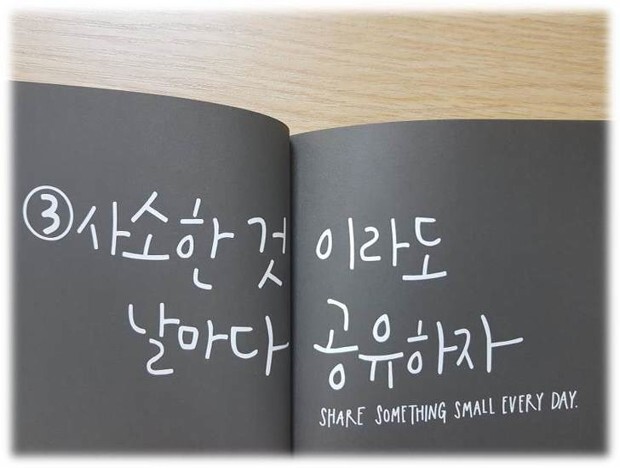 ③ 사소한 것이라도
날마다 공유하자
SHARE SOMETHING SMALL EVERY DAY.